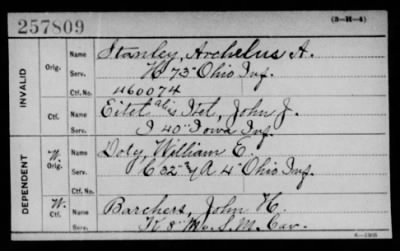 257809
(3-H-4)
INVALID
Orig.
Name Stanley, Archelus A.
Serv. H 75" Ohio Inf.
Ctf. No. 460074
Ctf.
Name Eitel alias Itel, John J.
Serv. I 40" Iowa Inf.
DEPENDENT
W. Orig.
Name Doty, William E.
Serv. 62" Ohio Inf.
W. Ctf.
Name Barchers, John H.
Serv. K 8" Mo. S. M. Cav.